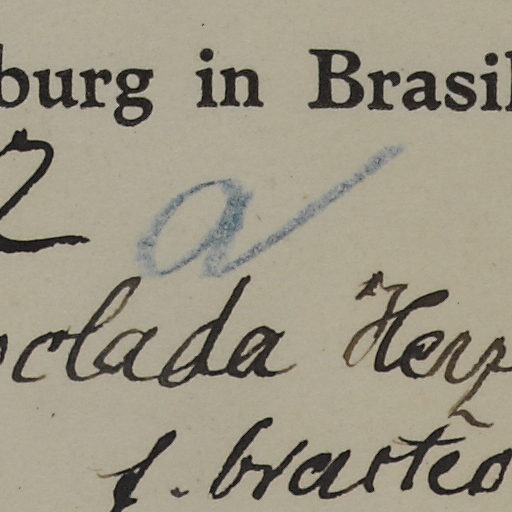 burg in Brasil
2 a
oclada Herz
f. bracteo